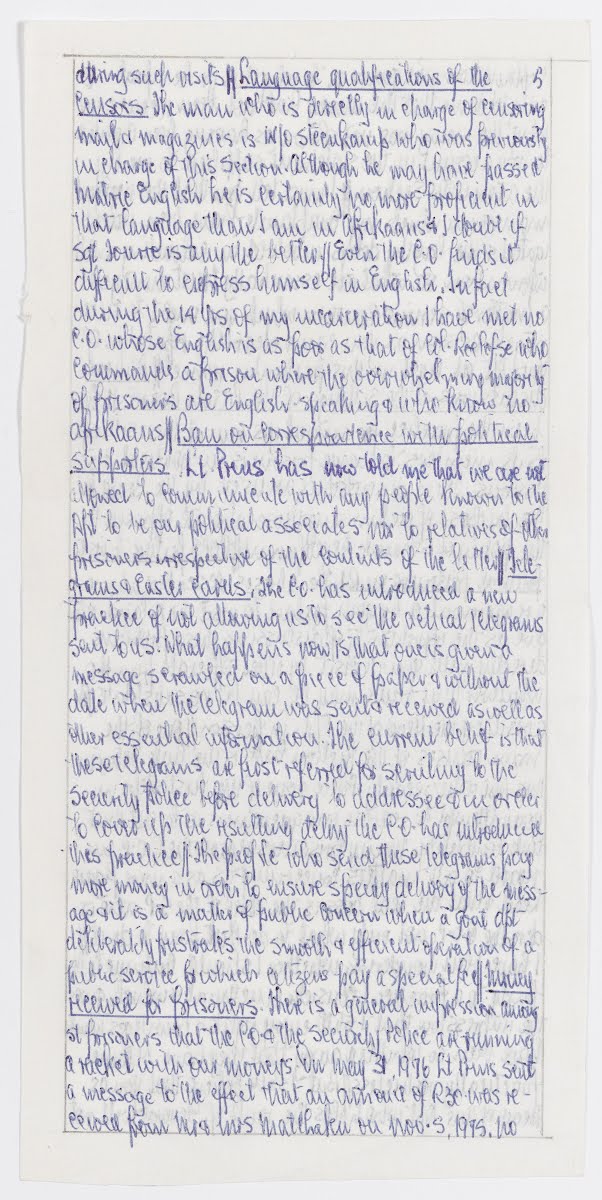 during such visits // Language qualifications of the 5
Censors. The man who is directly in charge of censoring
mail & magazines is W/O Steenkamp who was previously
in charge of this Section. Although he may have passed
matric English he is certainly no more proficient in
that language than I am in Afrikaans & I doubt if
Sgt Fourie is any the better // Even the C.O. finds it
difficult to express himself in English. In fact
during the 14 yrs of my incarceration I have met no
C.O. whose English is as poor as that of Col. Roelofse who
commands a prison where the overwhelming majority
of prisoners are English-speaking & who know no
Afrikaans // Ban on correspondence with political
supporters. Lt Prins has now told me that we are not
allowed to communicate with any people known to the
Dpt to be our political associates nor to relatives of other
prisoners irrespective of the contents of the letter // Tele-
grams & Easter Cards: The C.O. has introduced a new
practice of not allowing us to see the actual telegrams
sent to us. What happens now is that one is given a
message scrawled on a piece of paper & without the
date when the telegram was sent & received as well as
other essential information. The current belief is that
these telegrams are first referred for scrutiny to the
Security Police before delivery to addressee & in order
to cover up the resulting delay the C.O. has introduced
this practice // The people who send these telegrams pay
more money in order to ensure speedy delivery of the mess-
age & it is a matter of public concern when a govt dpt
deliberately frustrates the smooth & efficient operation of a
public service for which citizens pay a special fee // Money
received for prisoners. There is a general impression among
st prisoners that the CO & the Security Police are running
a racket with our moneys. On May 31, 1976 Lt Prins sent
a message to the effect that an amount of R30 was re-
ceived from Mr & Mrs Matlhaku on Nov. 5, 1975. No